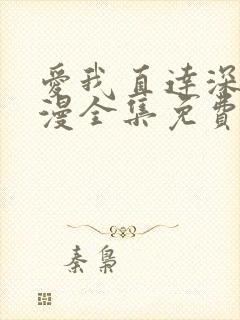 愛我直達深
漫全集免費
秦梟